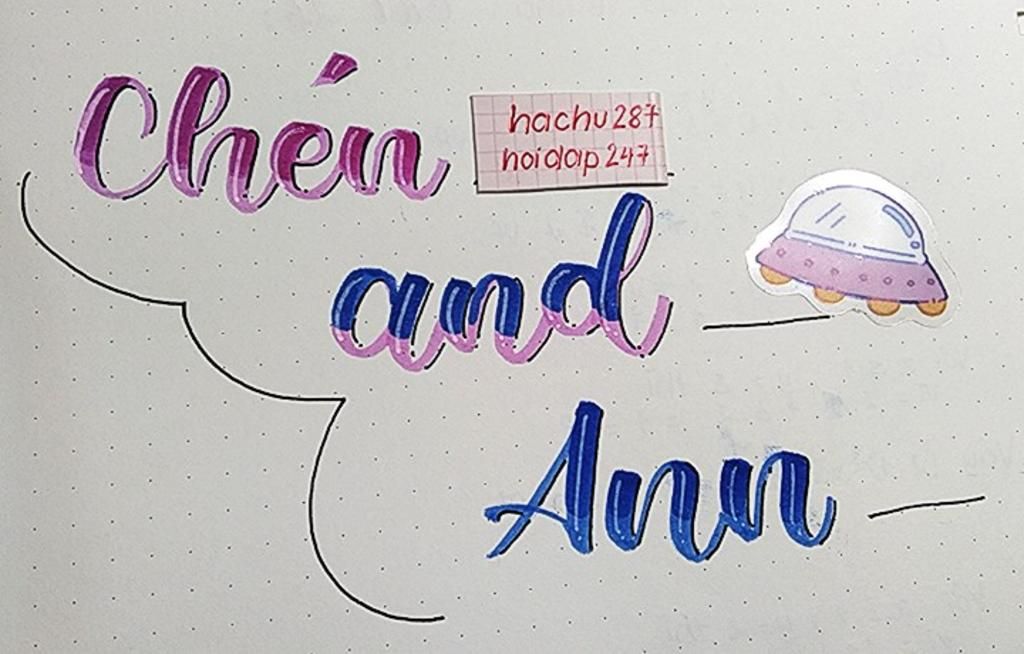 Chén
hachu287
hoidap247
and
Ann